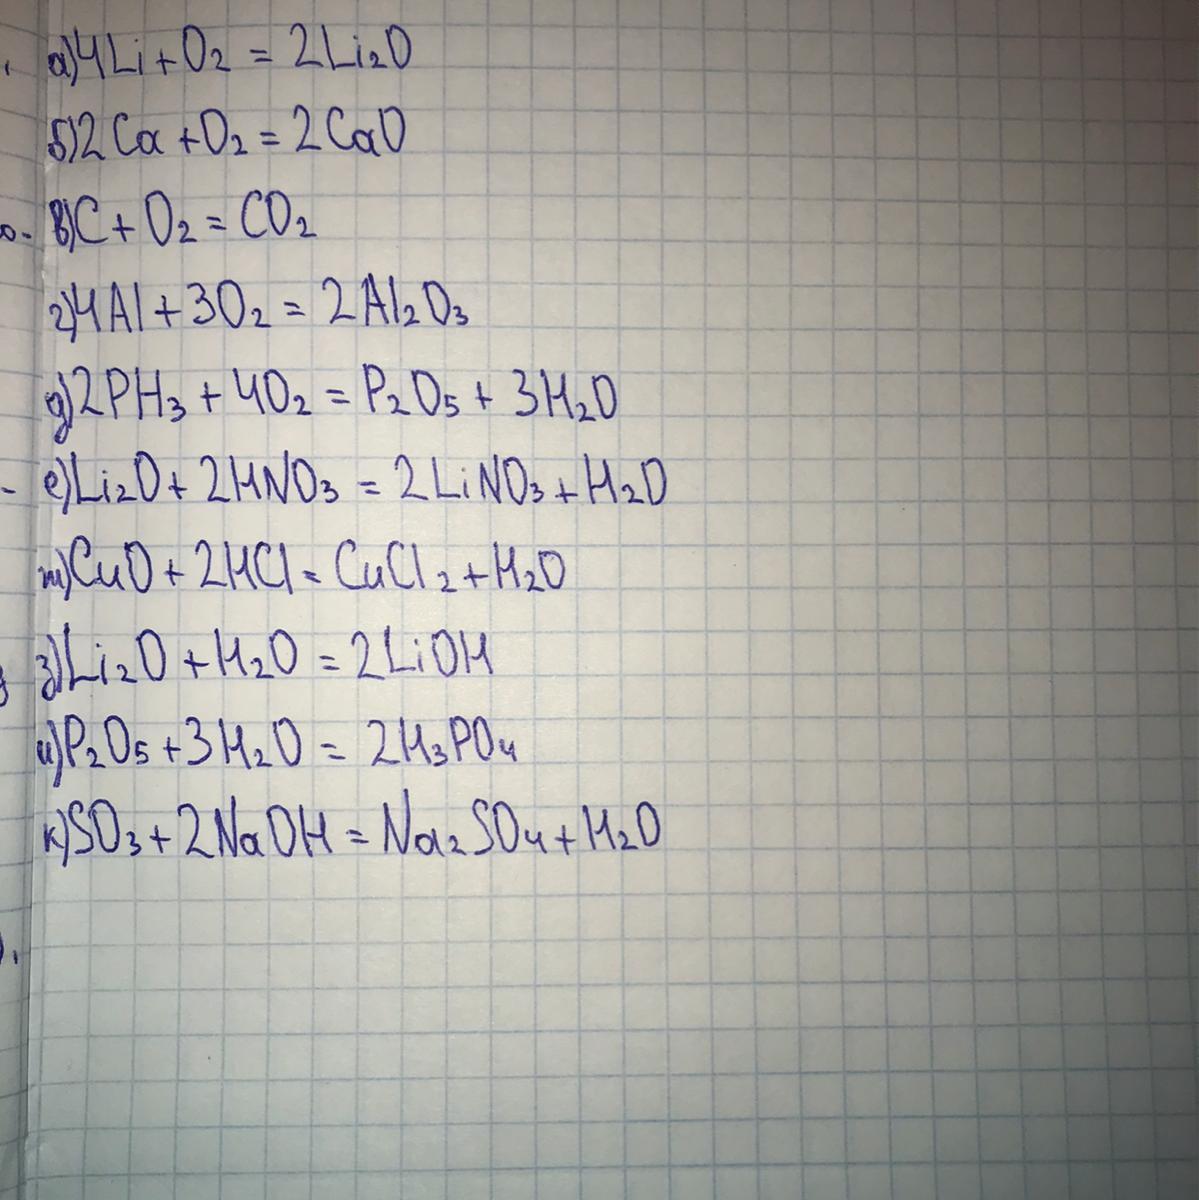 а)4Li+O₂ = 2Li₂O
б)2Ca+O₂=2CaO
в)C+O₂=CO₂
г)4Al+3O₂=2Al₂O₃
д)2PH₃+4O₂=P₂O₅+3H₂O
е)Li₂O+2HNO₃=2LiNO₃+H₂O
ж)CuO+2HCl=CuCl₂+H₂O
з)Li₂O+H₂O=2LiOH
и)P₂O₅+3H₂O=2H₃PO₄
к)SO₃+2NaOH=Na₂SO₄+H₂O